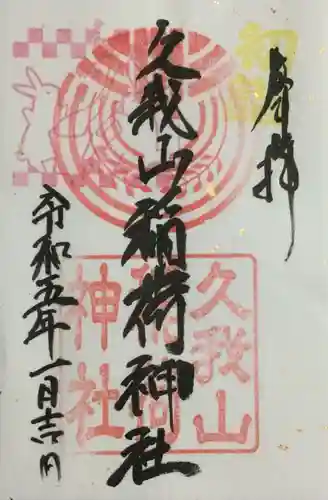 奉拝
初詣
久我山稲荷神社
久我山
稲荷
神社
令和五年一月吉日